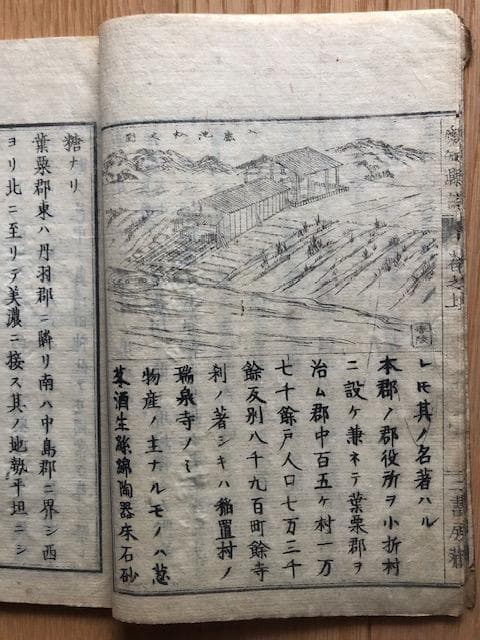 入鹿池杁之圖
レ𪜈其ノ名著ハル
本郡ノ郡役所ヲ小折村
ニ設ケ兼ネテ葉栗郡ヲ
治ム郡中百五ケ村一万
七千餘戸人口七万三千
餘反別八千九百町餘寺
刹ノ著シキハ稲置村ノ
瑞泉寺ノミ
物産ノ主ナルモノハ葱
茶酒生絲綿陶器床石砂
糖ナリ
葉栗郡東ハ丹羽郡ニ隣リ南ハ中島郡ニ界シ西
ヨリ北ニ至リテ美濃ニ接ス其ノ地勢平坦ニシ